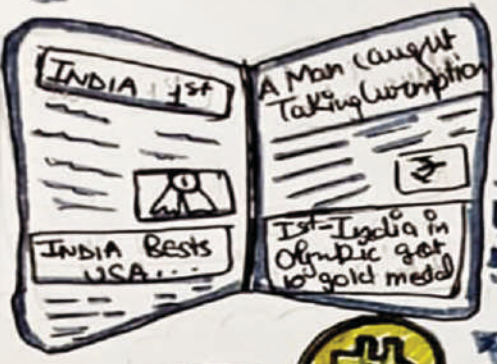 INDIA 1st
INDIA BESTS
USA...
A Man Caught
Taking Corruption
₹
Ist-India in
Olympic got
10 gold medal